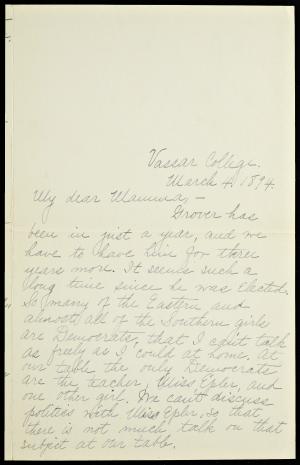 Vassar College.
March 4, 1894.
My dear Mamma,-
Grover has
been in just a year, and we
have to have him for three
years more. It seems such a
long time since he was elected.
So many of the Eastern and
almost all of the Southern girls
are Democrats, that I can't talk
as freely as I could at home. At
our table the only Democrats
are the teacher, Miss Epler, and
one other girl. We can't discuss
politics with Miss Epler, so that
there is not much talk on that
subject at our table.